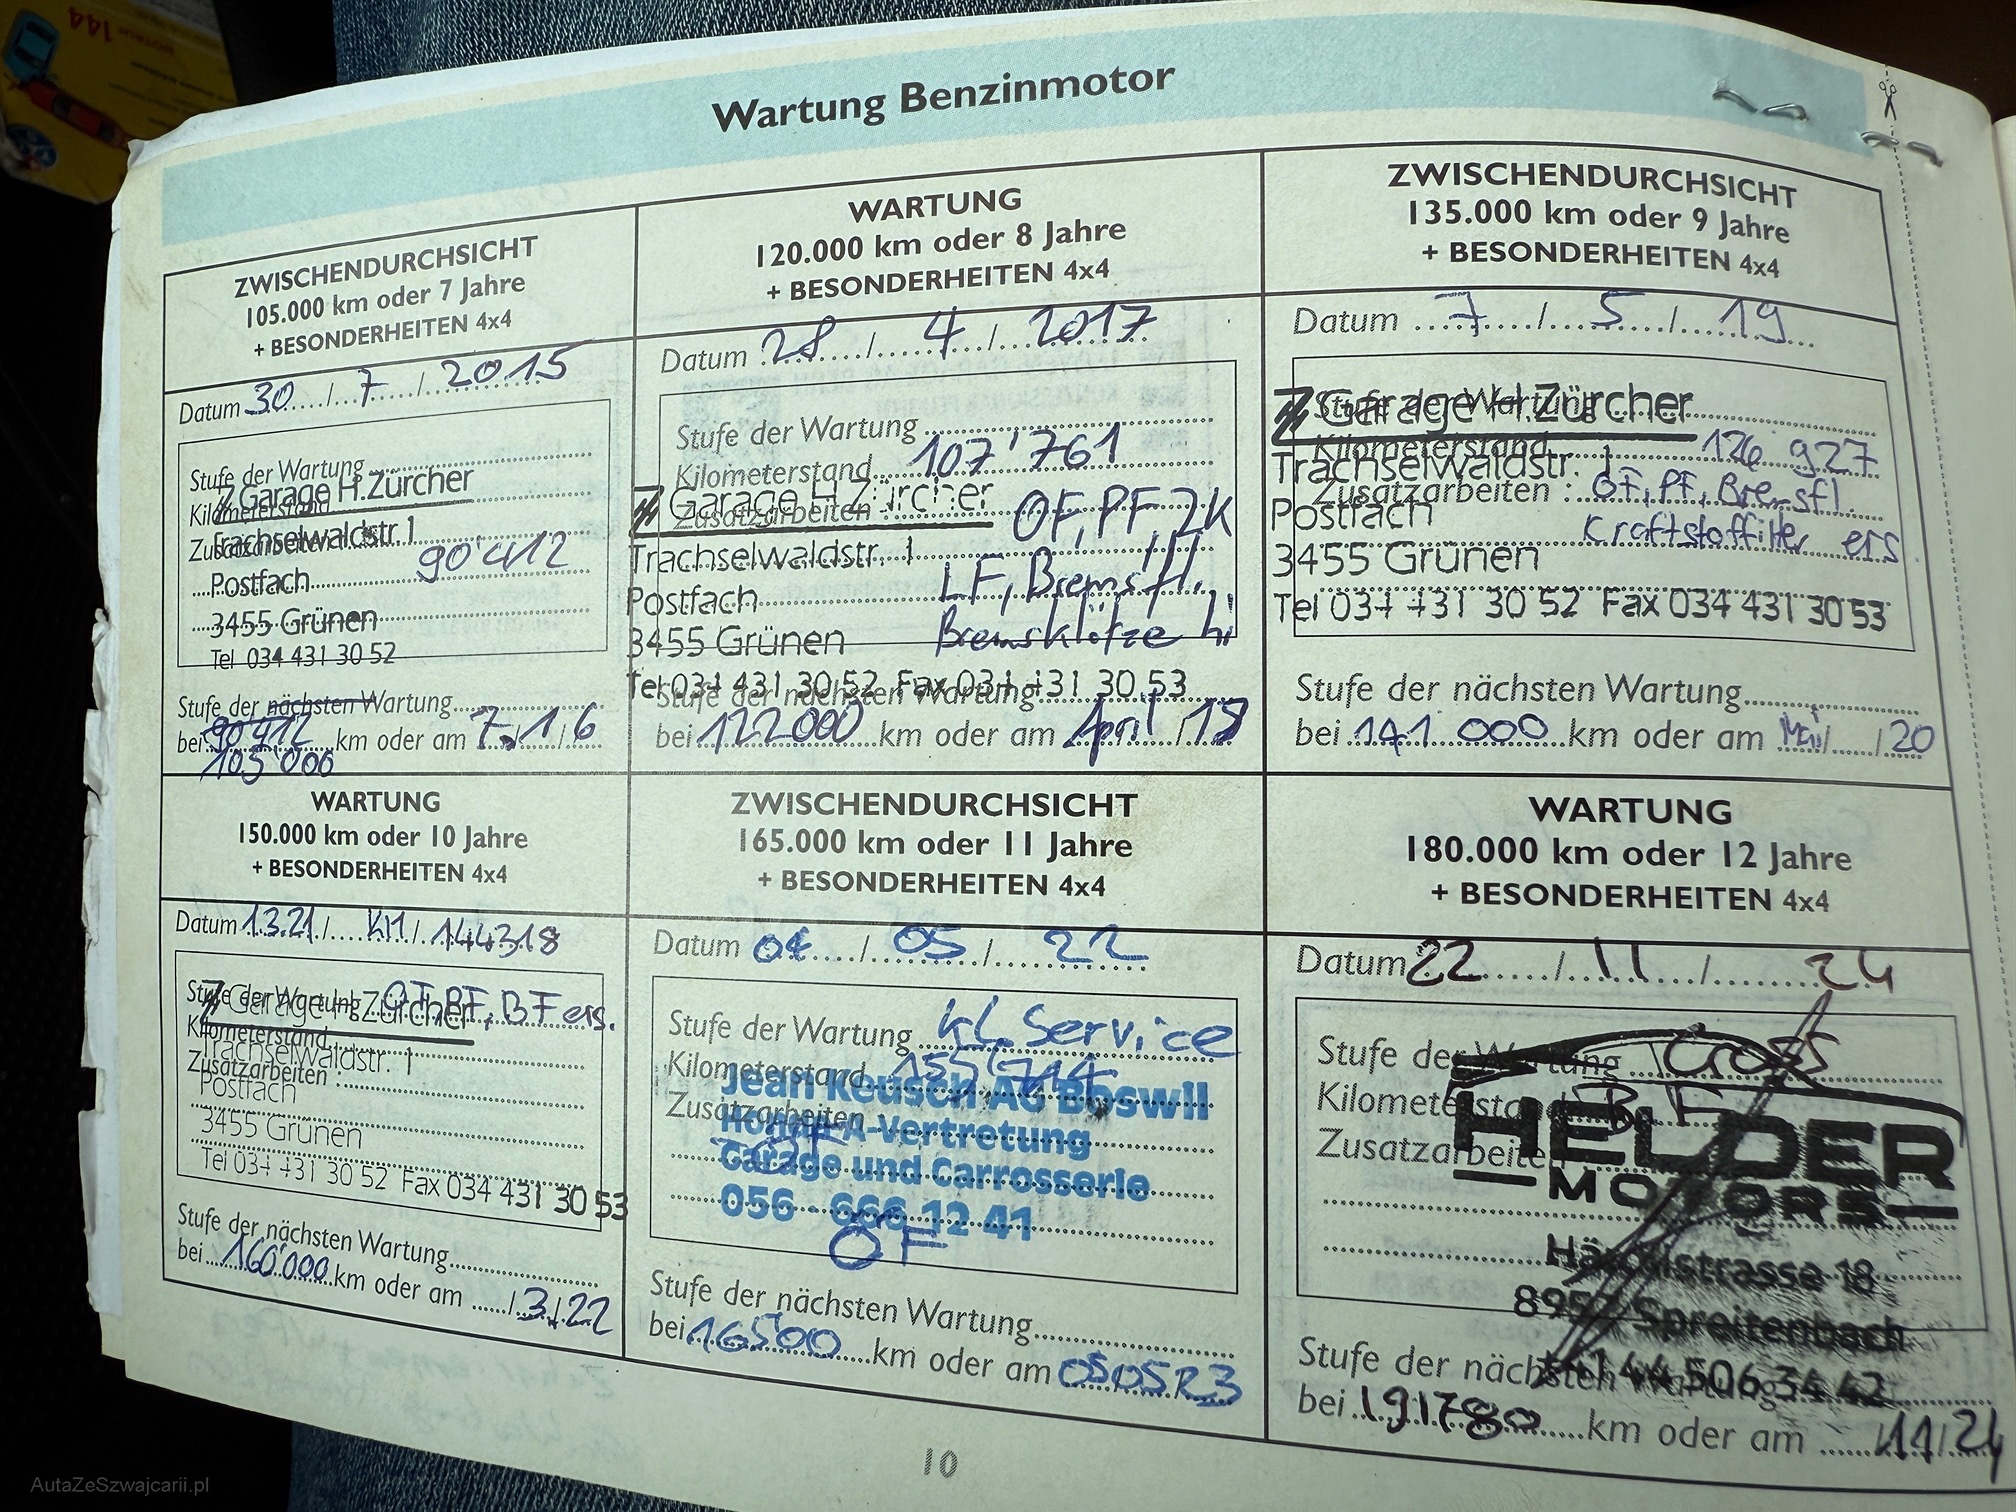 Wartung Benzinmotor
ZWISCHENDURCHSICHT
105.000 km oder 7 Jahre
+ BESONDERHEITEN 4x4
Datum 30 / 7 / 2015
Stufe der Wartung
Garage H.Zürcher
Kilometerstand
Trachselwaldstr. 1
Zusatzarbeiten
90'412
Postfach
3455 Grünen
Tel 034 431 30 52
Stufe der nächsten Wartung
bei 90412 km oder am 7.16
105'000
WARTUNG
120.000 km oder 8 Jahre
+ BESONDERHEITEN 4x4
Datum 28 / 4 / 2017
Stufe der Wartung
Kilometerstand 107'761
Garage H.Zürcher
Zusatzarbeiten : OF, PF ZK
Trachselwaldstr. 1
LF, Bremsfl.
Postfach
Bremsklötze hi
3455 Grünen
Tel 034 431 30 52 Fax 034 431 30 53
Stufe der nächsten Wartung
bei 122000 km oder am April / 18
ZWISCHENDURCHSICHT
135.000 km oder 9 Jahre
+ BESONDERHEITEN 4x4
Datum 7 / 5 / 19
Stufe der Wartung
Garage H.Zürcher
Kilometerstand 126 927
Trachselwaldstr. 1
Zusatzarbeiten : OF, PF, Bremsfl.
Postfach
Kraftstoffilter ers
3455 Grünen
Tel 034 431 30 52 Fax 034 431 30 53
Stufe der nächsten Wartung
bei 141 000 km oder am Mai / 20
WARTUNG
150.000 km oder 10 Jahre
+ BESONDERHEITEN 4x4
Datum 1.3.21 / KM / 144318
Stufe der Wartung PF, BF ers.
Garage H.Zürcher
Kilometerstand
Trachselwaldstr. 1
Zusatzarbeiten :
Postfach
3455 Grünen
Tel 034 431 30 52 Fax 034 431 30 53
Stufe der nächsten Wartung
bei 160'000 km oder am / 3 / 22
ZWISCHENDURCHSICHT
165.000 km oder 11 Jahre
+ BESONDERHEITEN 4x4
Datum / 05 / 22
Stufe der Wartung Kl. Service
Kilometerstand
Jean Keusch AG Boswil
Zusatzarbeiten
Honda-Vertretung
Garage und Carrosserie
056 666 12 41
OF
Stufe der nächsten Wartung
bei km oder am
WARTUNG
180.000 km oder 12 Jahre
+ BESONDERHEITEN 4x4
Datum 22 / 11 / 24
Stufe der Wartung
Kilometerstand
HELDER
Zusatzarbeiten
MOTORS
18
Spreitenbach
44 506 34 42
Stufe der nächsten Wartung
bei 191780 km oder am 11 / 24
10
AutaZeSzwajcarii.pl